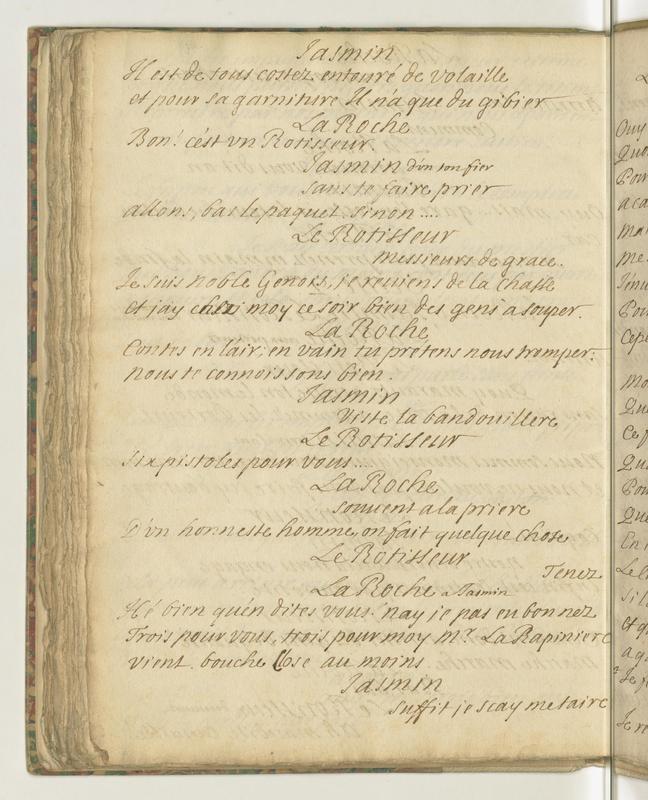 Jasmin
Il est de tous costez entouré de volaille
et pour sa garniture Il n'a que du gibier
La Roche
Bon! c'est vn Rotisseur
Jasmin d'vn ton fier
sans te faire prier
allons, bas le paquet sinon ....
Le Rotisseur
messieurs de grace.
Je suis noble Genois, je reuiens de la chasse
et j'ay chez moy ce soir bien des gens a souper.
La Roche
Contes en lair; en vain tu pretens nous tromper:
nous te connoissons bien.
Jasmin
viste la bandouillere
Le Rotisseur
six pistoles pour vous ...
La Roche
souuent a la priere
D'vn honneste homme, on fait quelque chose
Le Rotisseur
Tenez
La Roche a Jasmin
Hé bien qu'en dites vous! n'ay je pas eu bon nez
Trois pour vous, trois pour moy mr. La Rapiniere
vient. bouche Close au moins
Jasmin
suffit je scay me taire